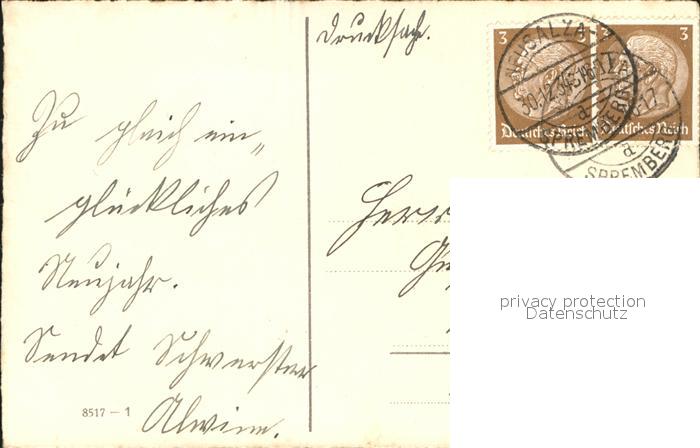 Drucksache.
3 3
Deutsches Reich Deutsches Reich
NEUSALZA-
30.12.34
SPREMBERG
a
SPREMBERG
Zu gleich ein
glückliches
Neujahr.
Sendet Schwester
Alwine.
Herrn
8517 – 1
privacy protection
Datenschutz